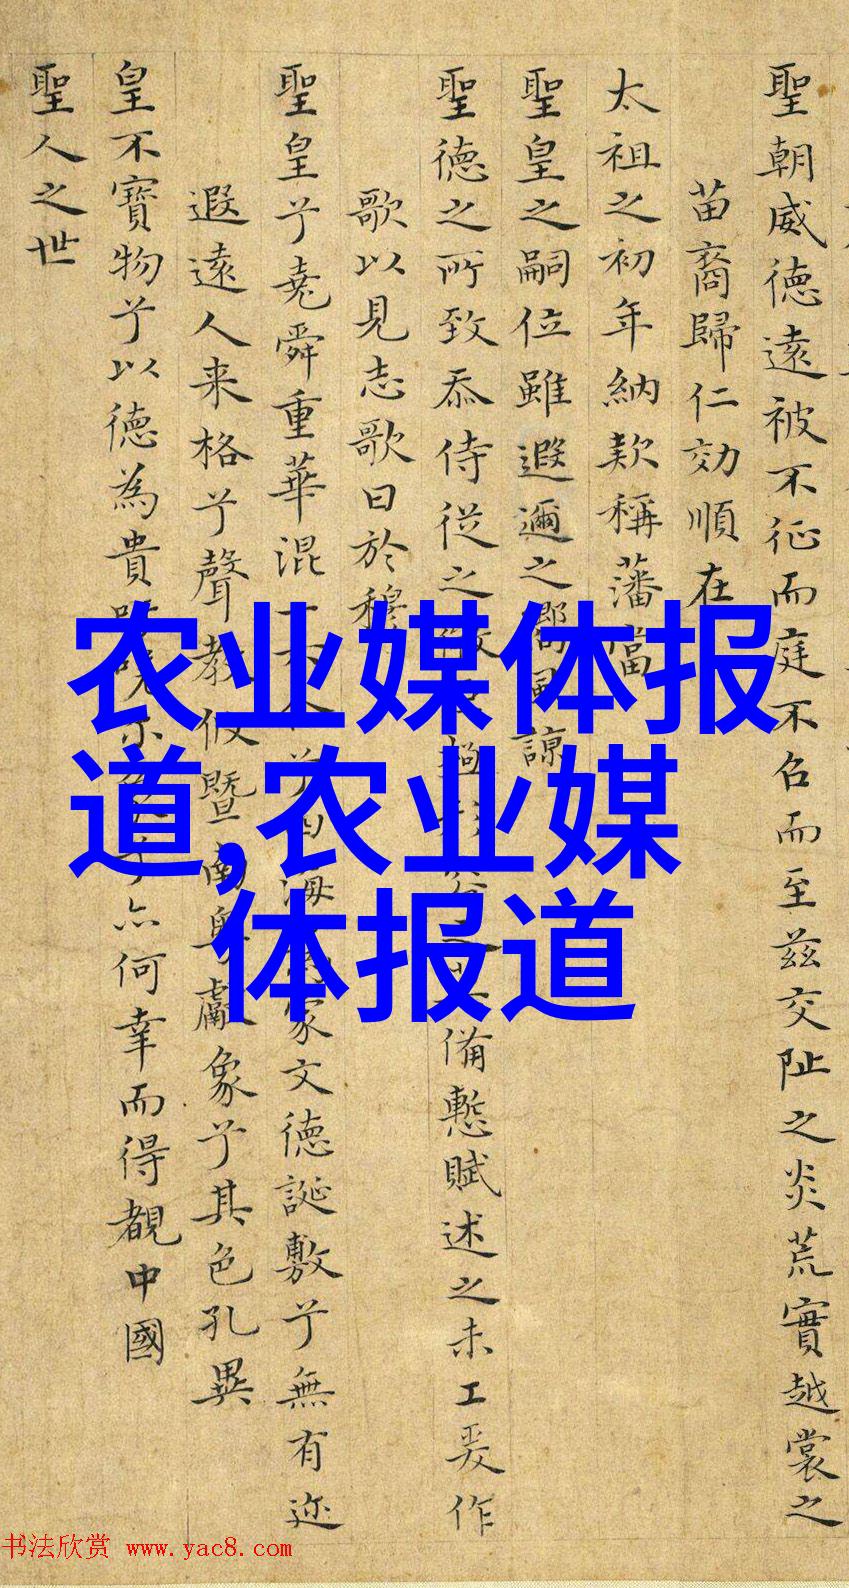 聖朝威德遠被不征而庭不召而至兹交阯之炎荒實越裳之
苗裔歸仁効順在
太祖之初年納款稱藩當
聖皇之嗣位雖遐邇之
聖德之所致忝侍從之
備慙賦述之未工爰作
歌以見志歌曰於穆
聖皇兮堯舜重華混一
家文德誕敷兮無有迩
遐遠人来格兮聲教攸暨南粤獻象兮其色孔異
皇不寶物兮以德為貴
亦何幸而得覩中國
聖人之世
农业媒体报
道,农业媒
体报道
书法欣赏 www.yac8.com